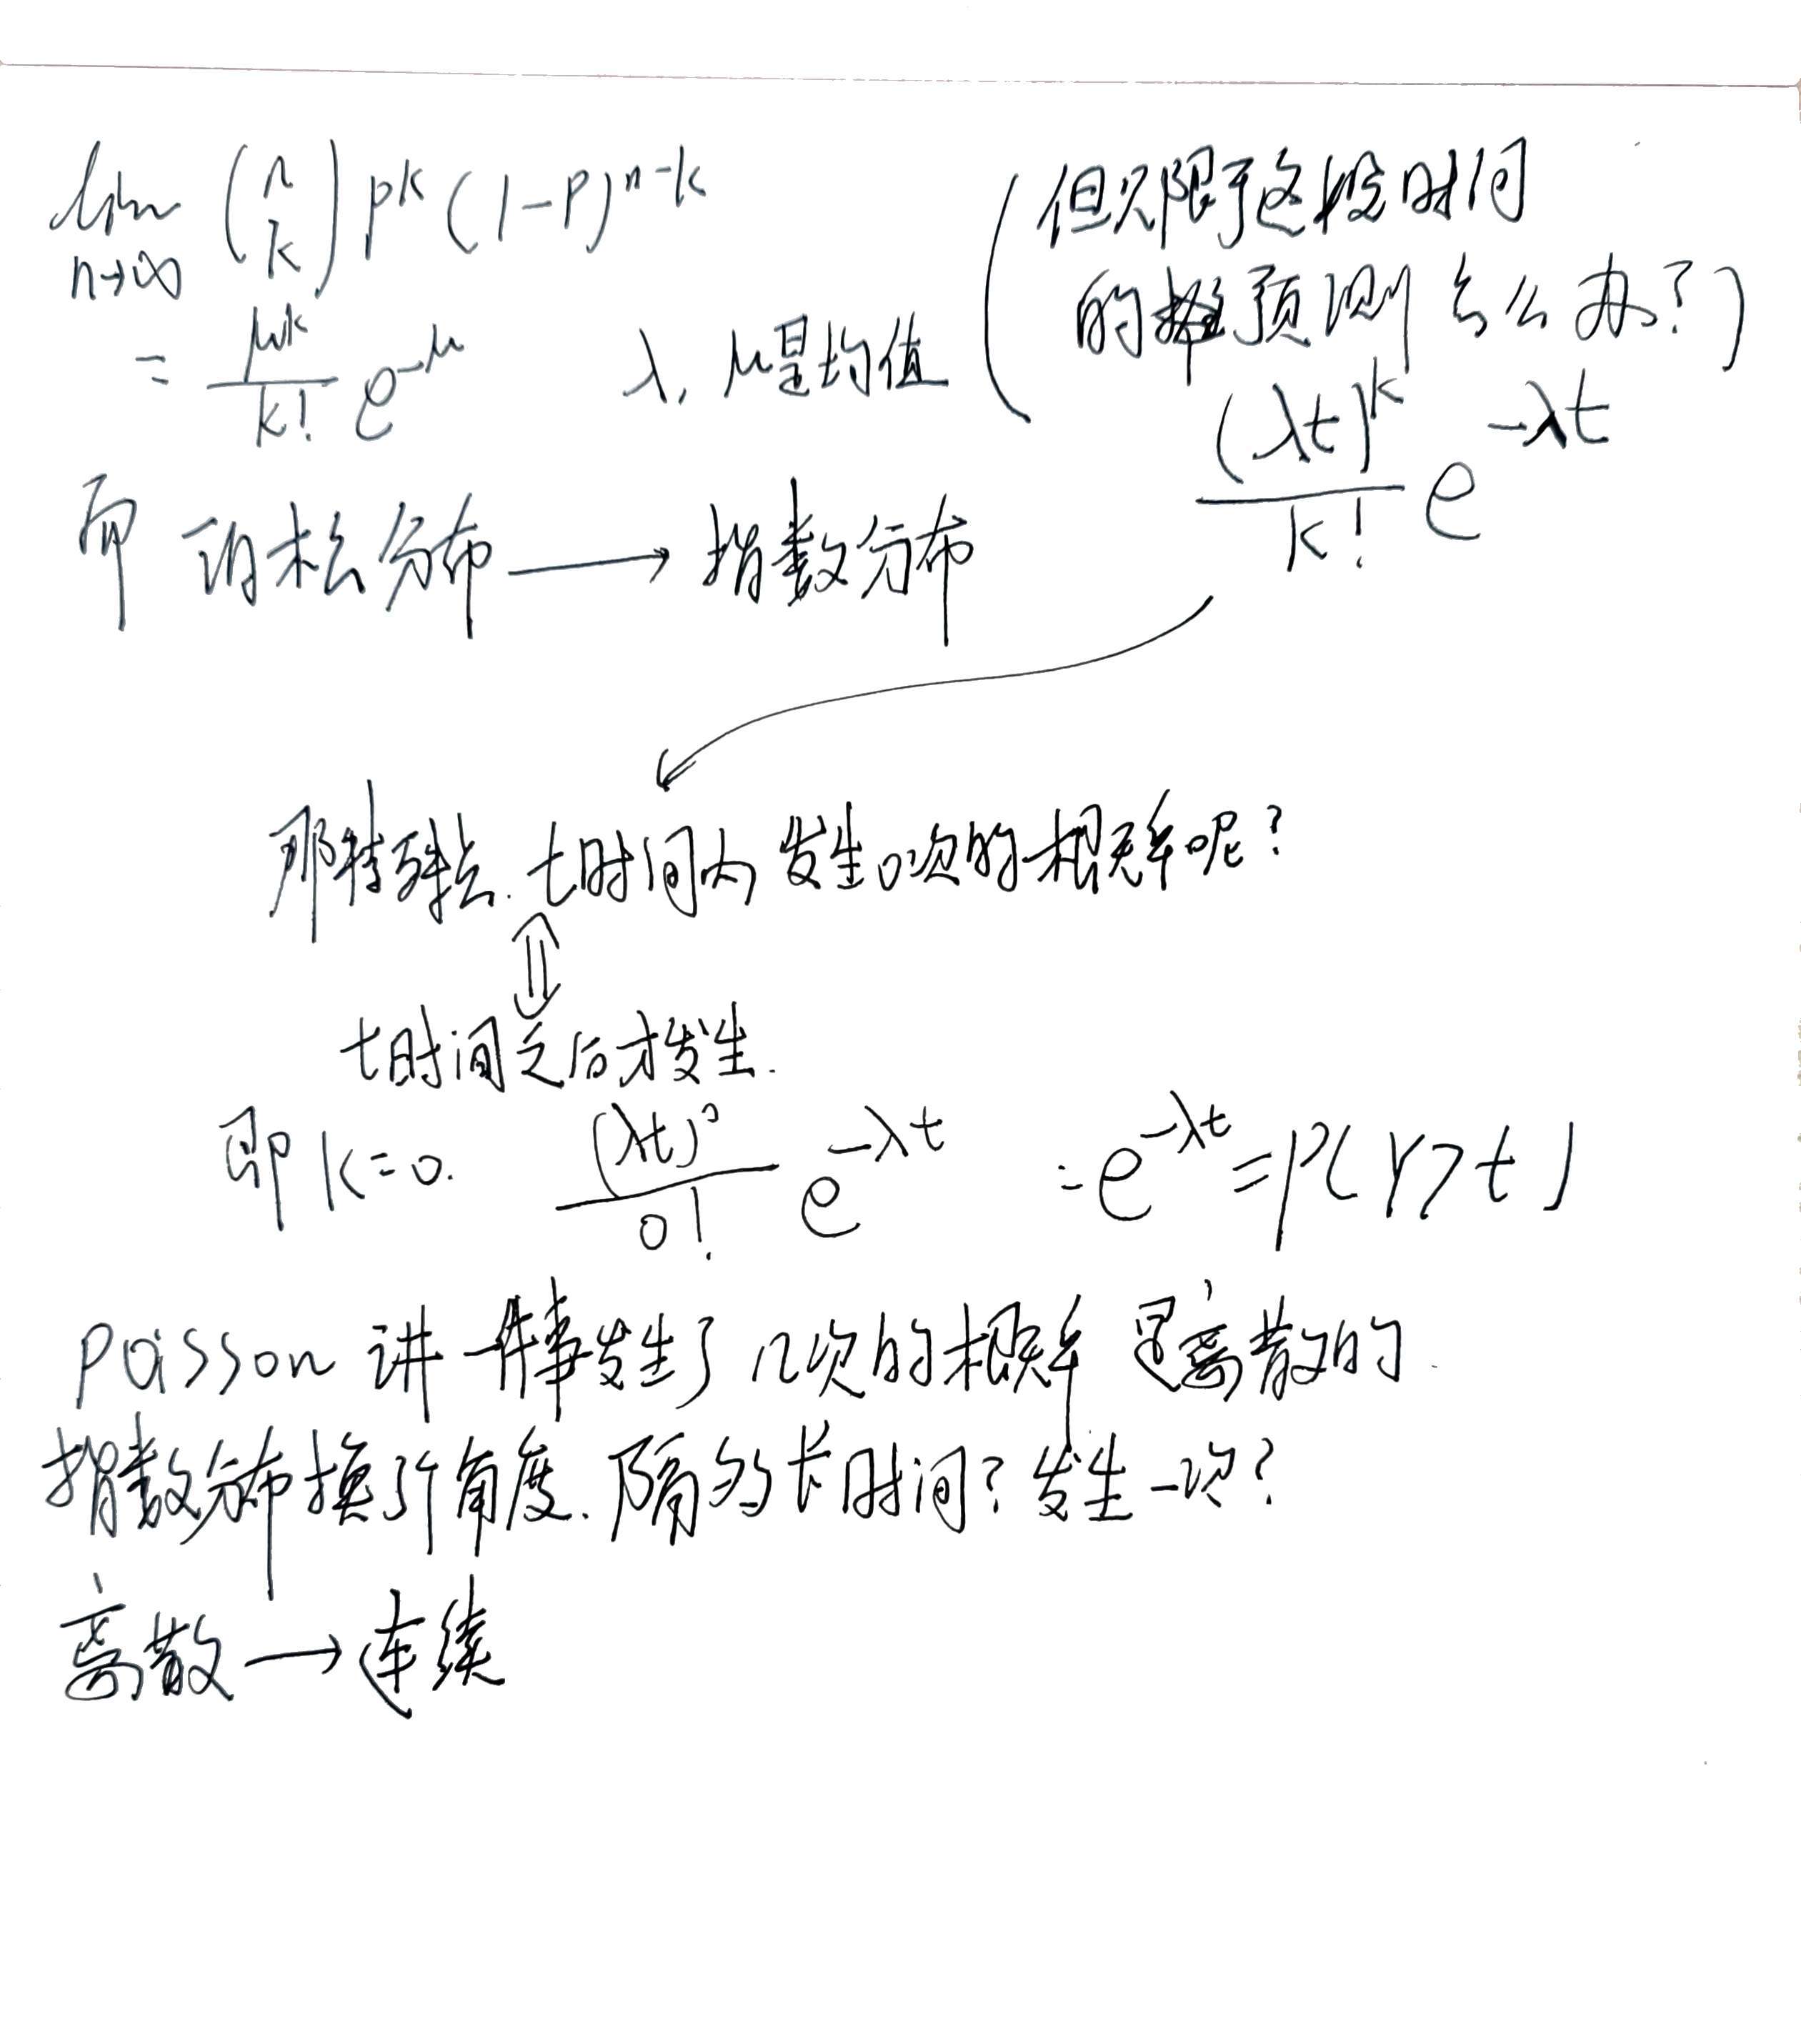 lim n→∞ (n k) p^k (1-p)^{n-k}
= μ^k / k! e^{-μ}
λ, μ是均值
(但只限了这段时间
的预测怎么办?)
(λt)^k / k! e^{-λt}
而 泊松分布 → 指数分布
那特殊点. t时间内发生0次的概率呢?
⇕
t时间之后才发生.
即 k=0. (λt)^0 / 0! e^{-λt} = e^{-λt} = P(Y>t)
Poisson 讲一件事发生了几次的概率 是离散的.
指数分布换了个角度. 隔多长时间? 发生一次?
离散 → 连续